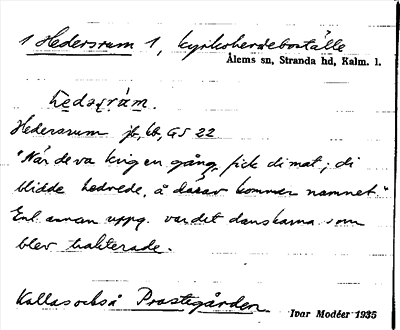 1 Hedersrum 1, kyrkoherdeboställe
Ålems sn, Stranda hd, Kalm. l.
hedəʂrám.
Hedersrum jb, GS 22
"När de va krig en gång, fick di mat; di
bliddе hedrede, å därav kommer namnet"
Enl. annan uppg. var det danskarna som
blev trakterade.
Kallas också Prästgården
Ivar Modéer 1935